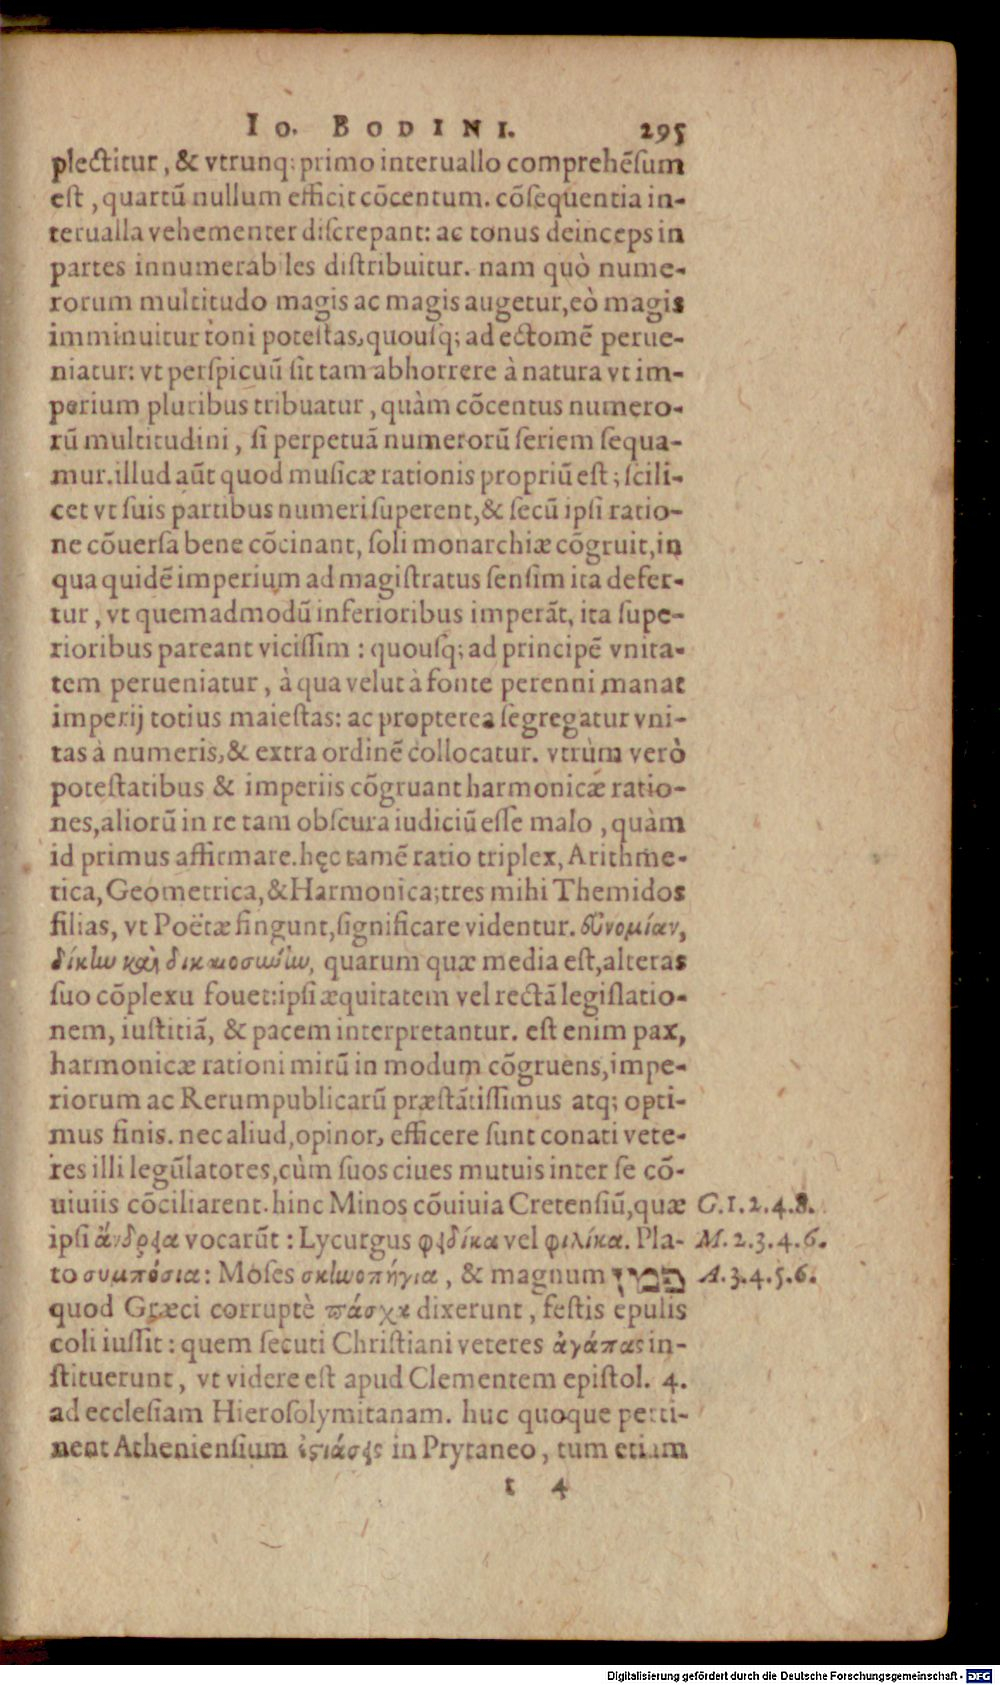 IO. BODINI. 295
plectitur, & vtrunq; primo interuallo comprehẽsum
est, quartũ nullum efficit cõcentum. cõsequentia in-
terualla vehementer discrepant: ac tonus deinceps in
partes innumerab les distribuitur. nam quò nume-
rorum multitudo magis ac magis augetur, eò magis
imminuitur toni potestas, quousq; ad ectomẽ perue-
niatur: vt perspicuũ sit tam abhorrere à natura vt im-
perium pluribus tribuatur, quàm cõcentus numero-
rũ multitudini, si perpetuã numerorũ seriem sequa-
mur. illud aũt quod musicæ rationis propriũ est; scili-
cet vt suis partibus numeri superent, & secũ ipsi ratio-
ne cõuersa bene cõcinant, soli monarchiæ cõgruit, in
qua quidẽ imperium ad magistratus sensim ita defer-
tur, vt quemadmodũ inferioribus imperãt, ita supe-
rioribus pareant vicissim: quousq; ad principẽ vnita-
tem perueniatur, à qua velut à fonte perenni manat
imperij totius maiestas: ac propterea segregatur vni-
tas à numeris, & extra ordinẽ collocatur. vtrùm verò
potestatibus & imperiis cõgruant harmonicæ ratio-
nes, aliorũ in re tam obscura iudiciũ esse malo, quàm
id primus affirmare. hęc tamẽ ratio triplex, Arithme-
tica, Geometrica, & Harmonica; tres mihi Themidos
filias, vt Poëtæ fingunt, significare videntur. εὐνομίαν,
δίκην καὶ δικαιοσύνην, quarum quæ media est, alteras
suo cõplexu fouet: ipsi æquitatem vel rectã legislatio-
nem, iustitiã, & pacem interpretantur. est enim pax,
harmonicæ rationi mirũ in modum cõgruens, impe-
riorum ac Rerumpublicarũ præstãtissimus atq; opti-
mus finis. nec aliud, opinor, efficere sunt conati vete-
res illi legũlatores, cùm suos ciues mutuis inter se cõ-
uiuiis cõciliarent. hinc Minos cõuiuia Cretensiũ, quæ G. 1. 2. 4. 8.
ipsi ἄνδρεια vocarũt: Lycurgus φειδίκα vel φιλίκα. Pla- M. 2. 3. 4. 6.
to συμπόσια: Moses σκηνοπήγια, & magnum A. 3. 4. 5. 6.
quod Græci corruptè πάσχα dixerunt, festis epulis
coli iussit: quem secuti Christiani veteres ἀγάπας in-
stituerunt, vt videre est apud Clementem epistol. 4.
ad ecclesiam Hierosolymitanam. huc quoque perti-
nent Atheniensium ἑστιάσεις in Prytaneo, tum etiam
t 4
Digitalisierung gefördert durch die Deutsche Forschungsgemeinschaft - DFG